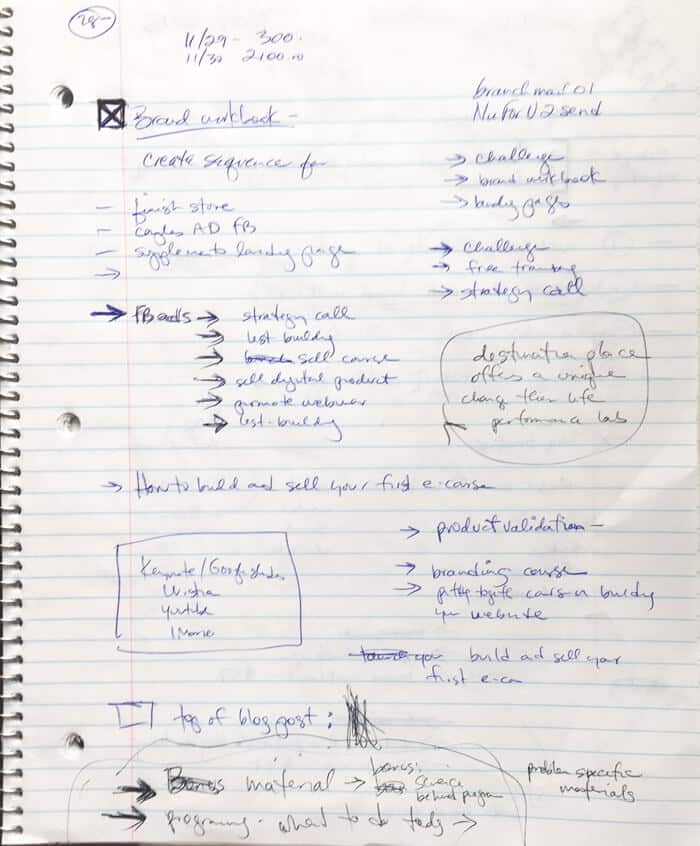 28-
11/29 - 300.
11/30 2100.00
brandmail01
NuForU2send
Brand workbook -
create sequence for
→ challenge
→ brand workbook
→ landing pages
- finish store
- AD FB
- supplements landing page
→
→ challenge
→ free training
→ strategy call
→ FB ads → strategy call
→ list building
→ sell course
→ sell digital product
→ promote webinar
→ list-building
destination place
offers a unique
change their life
performance lab
→ How to build and sell your first e-course
→ product validation -
Keynote/Google slides
Wistia
youtube
iMovie
→ branding course
→ building
your website
build and sell your
first e-co
top of blog post:
→ Bonus material → bonus:
science
behind program
problem specific
materials
→ programing - what to do today →